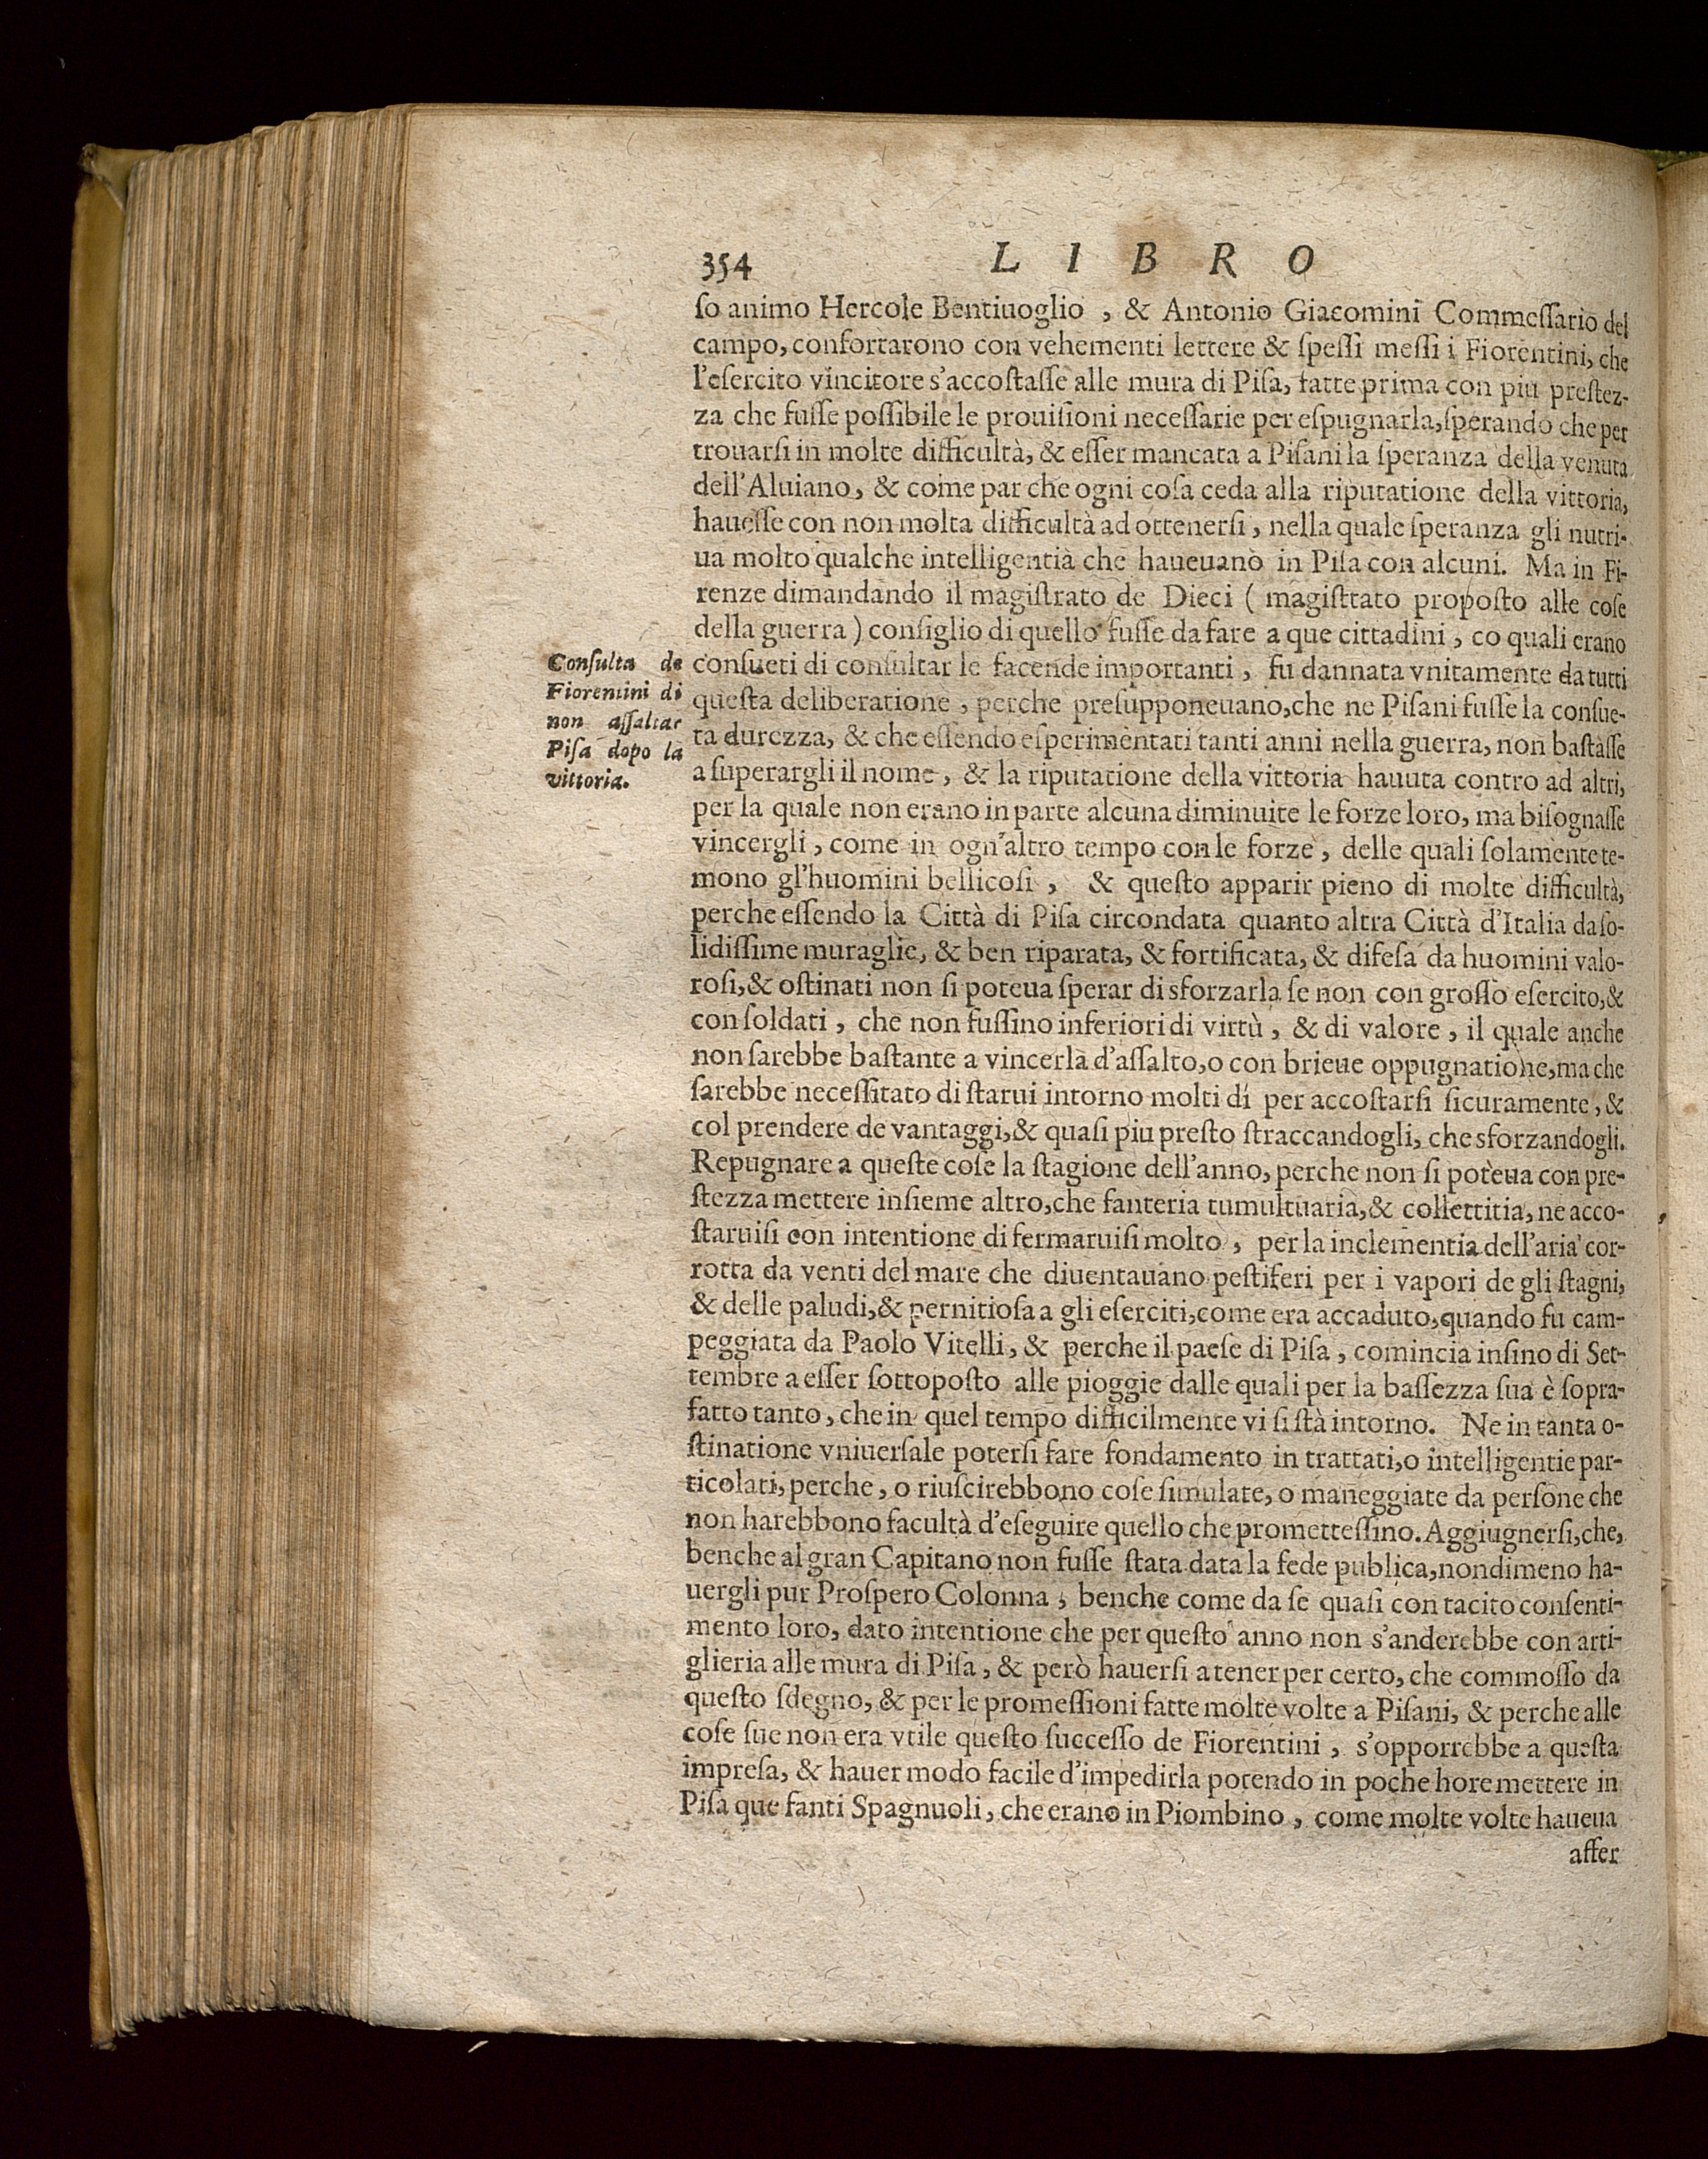 354 LIBRO
ſo animo Hercole Bentiuoglio, & Antonio Giacomini Commeſſario del
campo, confortarono con vehementi lettere & ſpeſſi meſſi i Fiorentini, che
l'eſercito vincitore s'accoſtaſſe alle mura di Piſa, fatte prima con piu preſtez-
za che fuſſe poſſibile le prouiſioni neceſſarie per eſpugnarla, ſperando che per
trouarſi in molte difficultà, & eſſer mancata a Piſani la ſperanza della venuta
dell'Aluiano, & come par che ogni coſa ceda alla riputatione della vittoria,
haueſſe con non molta difficultà ad ottenerſi, nella quale ſperanza gli nutri-
ua molto qualche intelligentia che haueuano in Piſa con alcuni. Ma in Fi-
renze dimandando il magiſtrato de Dieci (magiſtrato propoſto alle coſe
della guerra) conſiglio di quello fuſſe da fare a que cittadini, co quali erano
conſueti di conſultar le facende importanti, fu dannata vnitamente da tutti
queſta deliberatione, perche preſupponeuano, che ne Piſani fuſſe la conſue-
ta durezza, & che eſſendo eſperimentati tanti anni nella guerra, non baſtaſſe
a ſuperargli il nome, & la riputatione della vittoria hauuta contro ad altri,
per la quale non erano in parte alcuna diminuite le forze loro, ma biſognaſſe
vincergli, come in ogn'altro tempo con le forze, delle quali ſolamente te-
mono gl'huomini bellicoſi, & queſto apparir pieno di molte difficultà,
perche eſſendo la Città di Piſa circondata quanto altra Città d'Italia da ſo-
lidiſſime muraglie, & ben riparata, & fortificata, & difeſa da huomini valo-
roſi, & oſtinati non ſi poteua ſperar di sforzarla ſe non con groſſo eſercito, &
con ſoldati, che non fuſſino inferiori di virtù, & di valore, il quale anche
non ſarebbe baſtante a vincerla d'aſſalto, o con brieue oppugnatione, ma che
ſarebbe neceſſitato di ſtarui intorno molti dì per accoſtarſi ſicuramente, &
col prendere de vantaggi, & quaſi piu preſto ſtraccandogli, che sforzandogli.
Repugnare a queſte coſe la ſtagione dell'anno, perche non ſi poteua con pre-
ſtezza mettere inſieme altro, che fanteria tumultuaria, & collettitia, ne acco-
ſtaruiſi con intentione di fermaruiſi molto, per la inclementia dell'aria cor-
rotta da venti del mare che diuentauano peſtiferi per i vapori de gli ſtagni,
& delle paludi, & pernitioſa a gli eſerciti, come era accaduto, quando fu cam-
peggiata da Paolo Vitelli, & perche il paeſe di Piſa, comincia inſino di Set-
tembre a eſſer ſottopoſto alle pioggie dalle quali per la baſſezza ſua è ſopra-
fatto tanto, che in quel tempo difficilmente vi ſi ſtà intorno. Ne in tanta o-
ſtinatione vniuerſale poterſi fare fondamento in trattati, o intelligentie par-
ticolati, perche, o riuſcirebbono coſe ſimulate, o maneggiate da perſone che
non harebbono facultà d'eſeguire quello che prometteſſino. Aggiugnerſi, che,
benche al gran Capitano non fuſſe ſtata data la fede publica, nondimeno ha-
uergli pur Proſpero Colonna, benche come da ſe quaſi con tacito conſenti-
mento loro, dato intentione che per queſto anno non s'anderebbe con arti-
glieria alle mura di Piſa, & però hauerſi a tener per certo, che commoſſo da
queſto ſdegno, & per le promeſſioni fatte molte volte a Piſani, & perche alle
coſe ſue non era vtile queſto ſucceſſo de Fiorentini, s'opporrebbe a queſta
impreſa, & hauer modo facile d'impedirla potendo in poche hore mettere in
Piſa que fanti Spagnuoli, che erano in Piombino, come molte volte haueua
affer
Conſulta de
Fiorentini di
non aſſaltar
Piſa dopo la
vittoria.